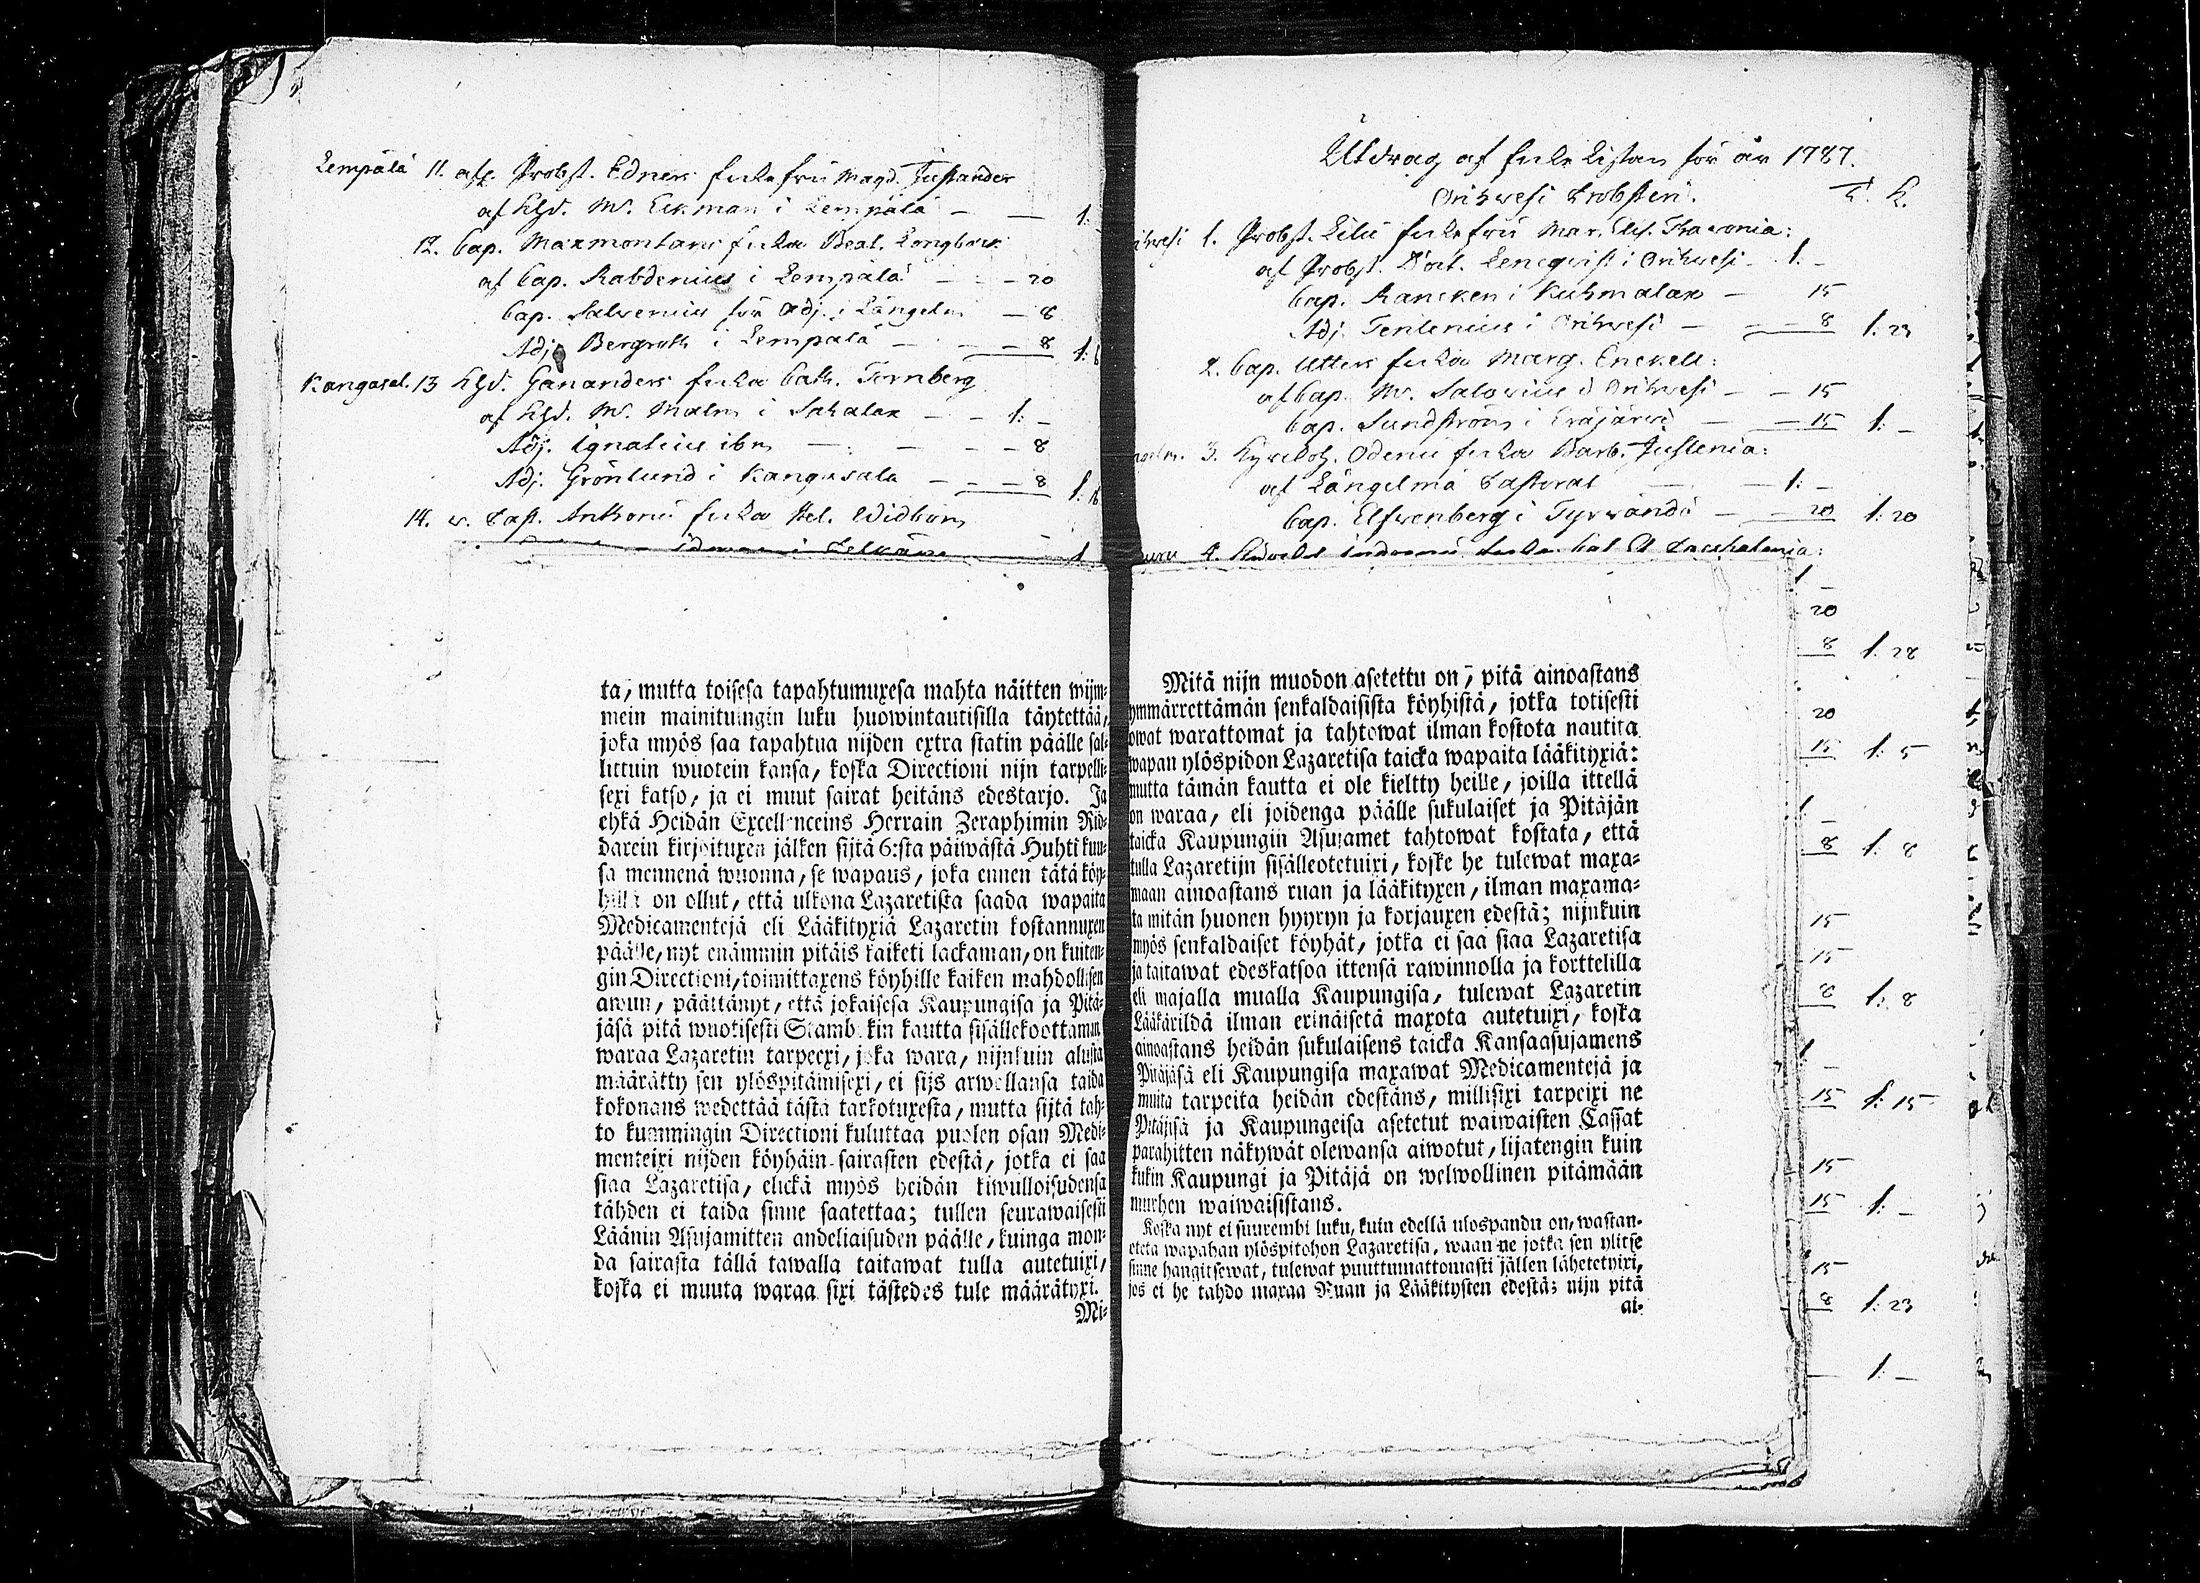 Lempälä 11. afl. Probst. Edners Enkefru Magd. Justander
af Khd. M. Eckman i Lempälä — — 1:
12. Cap. Maxmontans Enka Beat. Longberg
af Cap. Rabdenius i Lempälä — — 20
Cap. Salvenius för Adj. i Längelm — 8
Adj. Bergroth i Lempälä — — 8 1:
Kangasal. 13 Khd. Gananders Enka Cath. Ternberg
af Khd. M. Malm i Sahalax — — 1: —
Adj. Ignatius ibm — — 8
Adj. Grönlund i Kangasala — — 8 1: 16
14. v. Past. Anthonii Enka Hel. Widbom
i Pelkäne — 1
ta, mutta toisesa tapahtumuxesa mahta näitten wijm-
mein mainitungin luku huowintautisilla täytettää,
joka myös saa tapahtua nijden extra statin päälle sal-
littuin wuotein kansa, koska Directioni nijn tarpelli-
sexi katso, ja ei muut sairat heitäns edestarjo. Ja
ehkä Heidän Excellenceins Herrain Zeraphimin Rid-
darein kirjoituxen jälken sijtä 6:sta päiwästä Huhti kuu-
sa mennenä wuonna, se wapaus, joka ennen tätä köy-
hillä on ollut, että ulkona Lazaretista saada wapaita
Medicamentejä eli Lääkityxiä Lazaretin kostannuxen
päälle, nyt enämmin pitäis kaiketi lackaman, on kuiten-
gin Directioni, toimittaxens köyhille kaiken mahdollisen
awun, päättänyt, että jokaisesa Kaupungisa ja Pitä-
jäsä pitä wuotisesti Stambokin kautta sisällekoottaman
waraa Lazaretin tarpeexi, joka wara, nijnkuin alusta
määrätty sen ylöspitämisexi, ei sijs arwellansa taida
kokonans wedettää tästä tarkotuxesta, mutta sijtä tah-
to kummingin Directioni kuluttaa puolen osan Medi-
menteixi nijden köyhäin sairasten edestä, jotka ei saa
siaa Lazaretisa, elickä myös heidän kiwulloisudensa
tähden ei taida sinne saatettaa; tullen seurawaisesti
Läänin Asujamitten andeliaisuden päälle, kuinga mon-
da sairasta tällä tawalla taitawat tulla autetuixi,
koska ei muuta waraa sixi tästedes tule määrätyxi.
Mi-
Utdrag af Enke Listan för år 1787.
Orihwesi Probsteri. T. K.
1. Probst. Lilii Enkefru Mar. Elis. Fraxonia:
af Probst. Doct. Lencqvist i Orihwesi — 1: —
Cap. Rancken i Kuhmalax — 15
Adj. Tenlenius i Orihwesi — — 8 1: 23
2. Cap. Utters Enka Marg. Enckell:
af Cap. M. Salovius i Orihwesi — — 15
Cap. Sundström i Eräjärwi — 15 1: —
3. Kyrckoh. Odenii Enka Barb. Juslenia:
af Längelmä Pastorat — 1: —
Cap. Elfwenberg i Tyrwändö — — 20 1: 20
4. Enka
1 —
20
8 1: 28
20
15 1: 5
1 —
8 1: 8
15
15
8 1: 8
1 —
15 1: 15
15
15 1: —
15
8 1: 23
— 1: —
Mitä nijn muodon asetettu on, pitä ainoastans
ymmärrettämän senkaldaisista köyhistä, jotka totisesti
owat warattomat ja tahtowat ilman kostota nautita
wapan ylöspidon Lazaretisa taicka wapaita lääkityxiä:
mutta tämän kautta ei ole kieltty heille, joilla ittellä
on waraa, eli joidenga päälle sukulaiset ja Pitäjän
taicka Kaupungin Asujamet tahtowat kostata, että
tulla Lazaretijn sisälleotetuixi, koske he tulewat maxa-
maan ainoastans ruan ja lääkityxen, ilman maxama-
ta mitän huonen hyyryn ja korjauxen edestä; nijnkuin
myös senkaldaiset köyhät, jotka ei saa siaa Lazaretisa
ja taitawat edeskatsoa ittensä rawinnolla ja korttelilla
eli majalla mualla Kaupungisa, tulewat Lazaretin
Lääkärildä ilman erinäisetä maxota autetuixi, koska
ainoastans heidän sukulaisens taicka Kansaasujamens
Pitäjäsä eli Kaupungisa maxawat Medicamentejä ja
muita tarpeita heidän edestäns, millisixi tarpeixi ne
Pitäjisä ja Kaupungeisa asetetut waiwaisten Cassat
parahitten näkywät olewansa aiwotut, lijatengin kuin
kukin Kaupungi ja Pitäjä on welwollinen pitämään
murhen waiwaisistans.
Koska nyt ei suurembi luku, kuin edellä ulospandu on, wastan-
oteta wapahan ylöspitohon Lazaretisa, waan ne jotka sen ylitse
sinne hangitsewat, tulewat puuttumattomasti jällen lähetetyixi,
jos ei he tahdo maxaa Ruan ja Lääkitysten edestä; nijn pitä
ai-